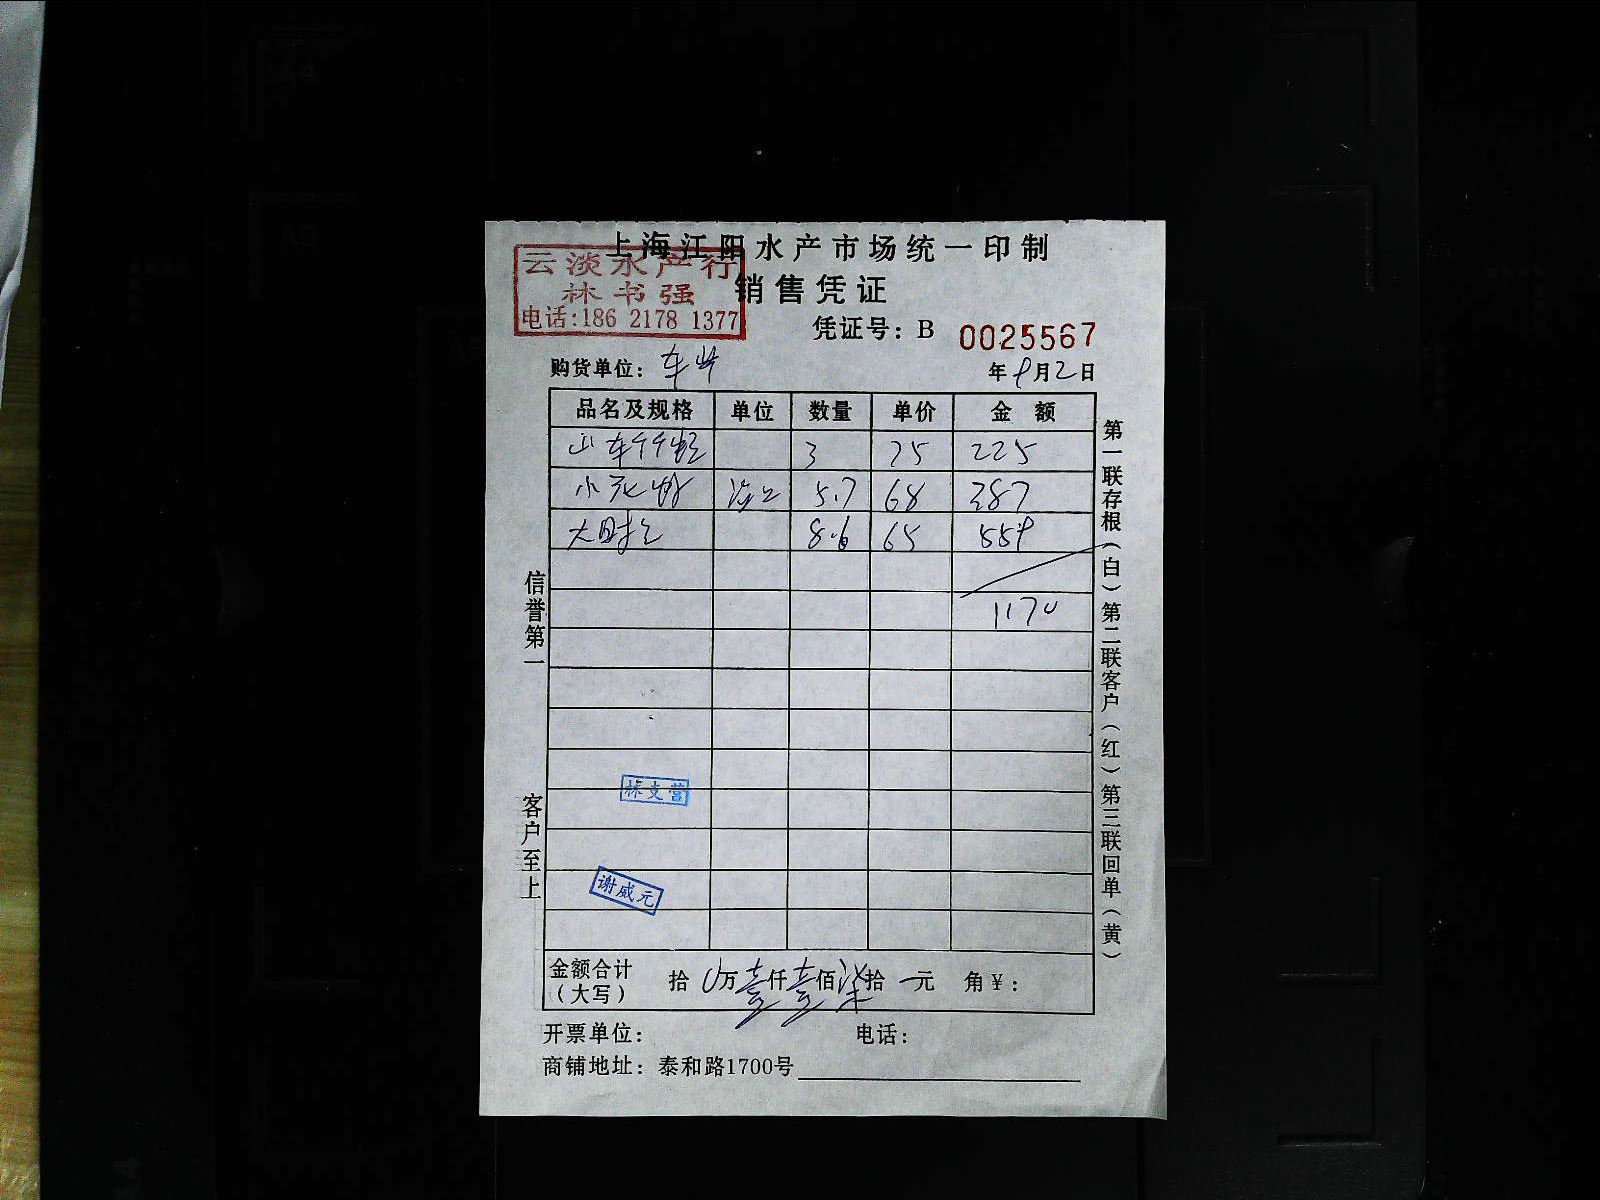 上海江阳水产市场统一印制
云淡水产行
林书强
电话:186 2178 1377
销售凭证
凭证号: B 0025567
购货单位:
年 9月2日
品名及规格 单位 数量 单价 金 额
3 75 225
小 5.7 68 387
大 8.6 65 559
1170
信誉第一
客户至上
第一联存根(白)第二联客户(红)第三联回单(黄)
谢威元
金额合计(大写) 拾 万壹仟壹佰柒拾 元 角¥:
开票单位: 电话:
商铺地址: 泰和路1700号